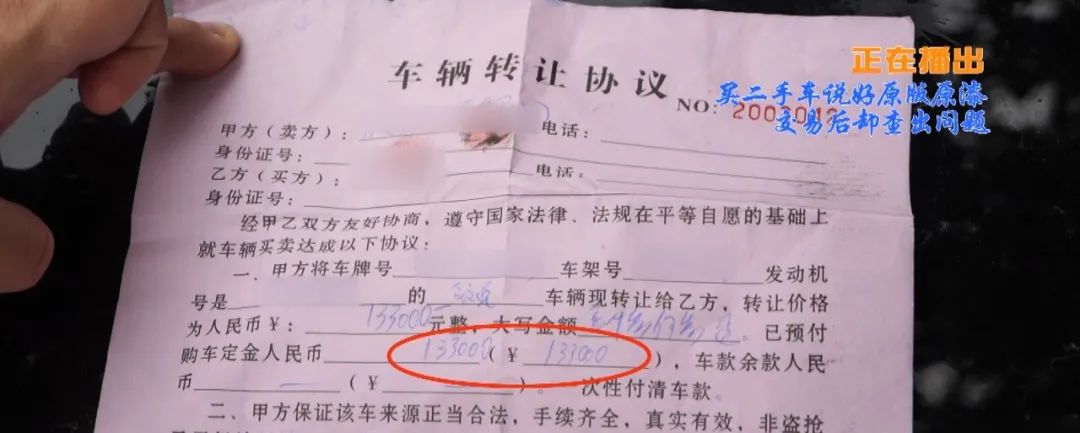 正在播出
买二手车说好原版原漆
交易后却查出问题
车辆转让协议
NO: 2000012
甲方（卖方）： 电话：
身份证号：
乙方（买方）： 电话：
身份证号：
经甲乙双方友好协商，遵守国家法律、法规在平等自愿的基础上
就车辆买卖达成以下协议：
一、甲方将车牌号 车架号 发动机
号是 的 车辆现转让给乙方，转让价格
为人民币￥： 133000 元整，大写金额 已预付
购车定金人民币 133000 （￥ 133000 ），车款余款人民
币 — （￥ — ）。 次性付清车款。
二、甲方保证该车来源正当合法，手续齐全，真实有效，非盗抢